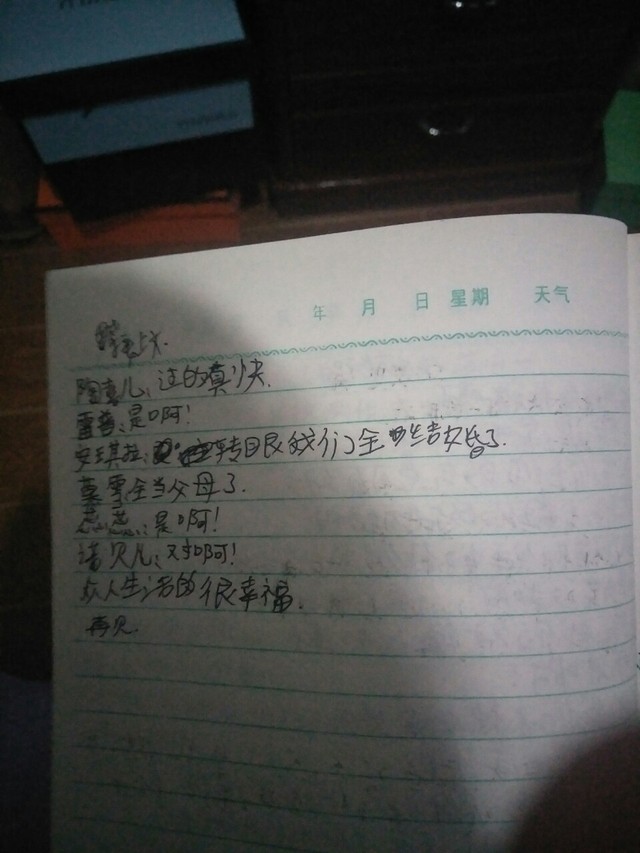 年 月 日 星期 天气
陶喜儿:过的真快.
雷普:是啊!
安琪拉:转眼我们全都结女昏了.
莫雪全当父母了.
蕊蕊:是啊!
诺贝儿:对啊!
众人生活的很幸福.
再见.